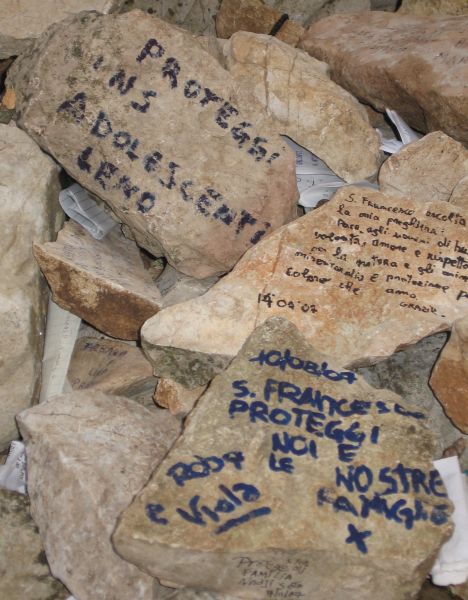 PROTEGGI
INS
ADOLESCENTI
LENO
S. Francesco ascolta
la mia preghiera:
Pace agli uomini di
volontà, amore e rispetto
per la natura e gli
misericordia e protezione
coloro che amo
GRAZIE
14.08.07
10/08/07
S. FRANCESCO
PROTEGGI
NOI E
LE NOSTRE
FAMIGLIE
X
ROBY
e Viola
FAMILIA